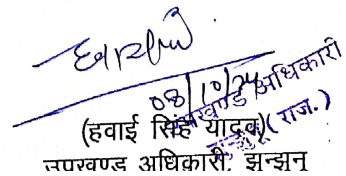 08/10/24
उपखण्ड अधिकारी
झुन्झुनू (राज.)
(हवाई सिंह यादव)
उपखण्ड अधिकारी, झुन्झुनू